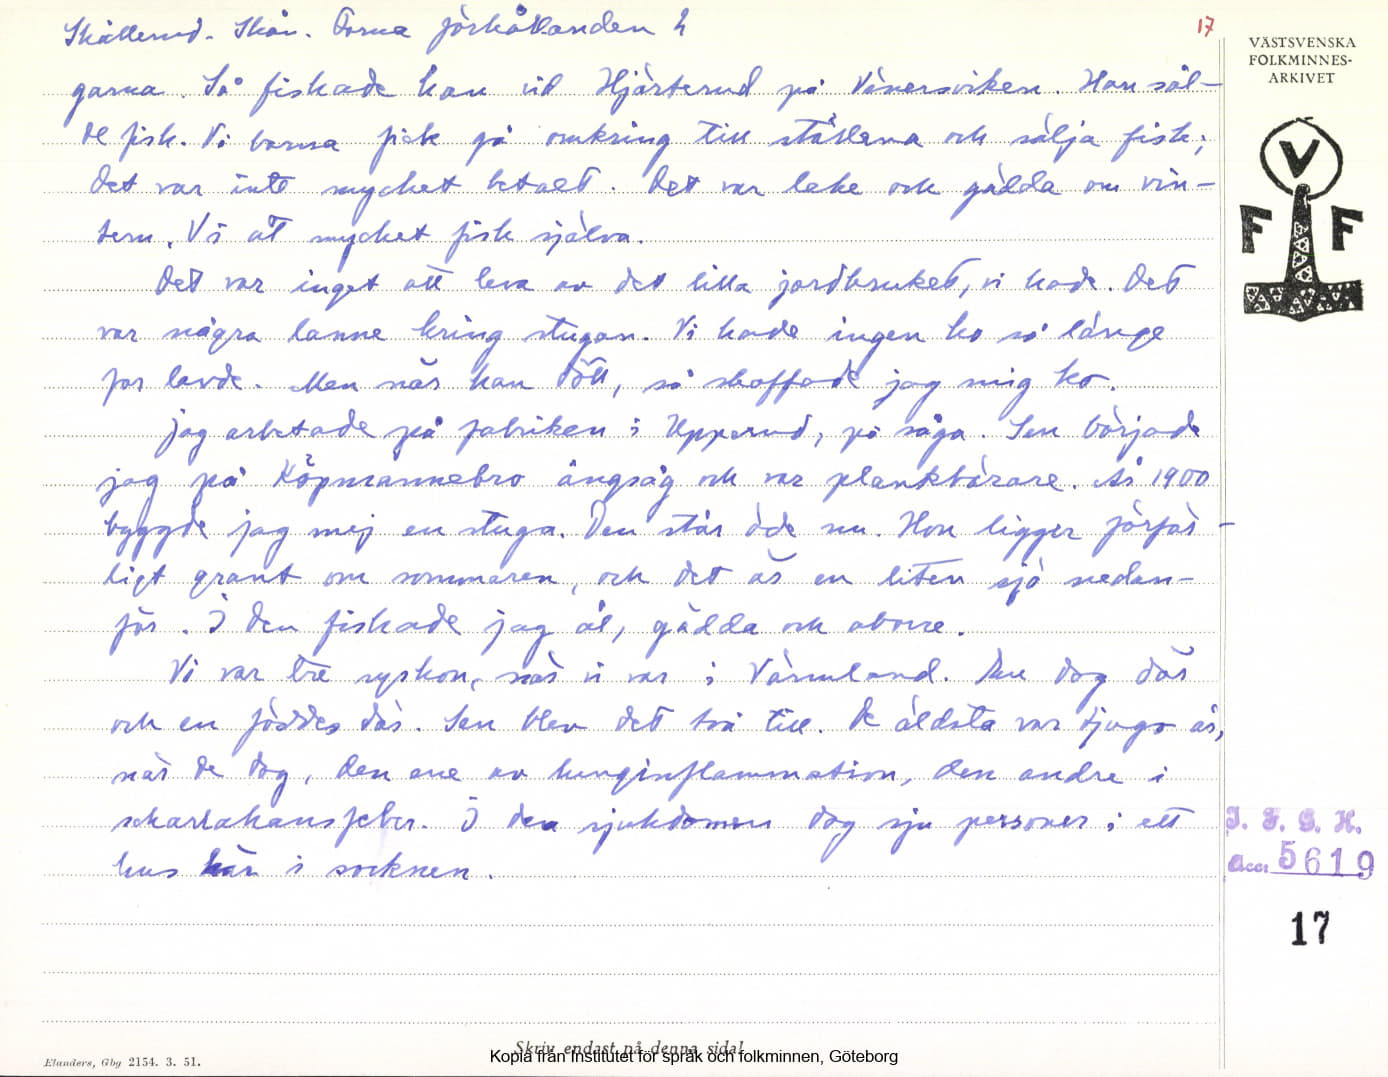 Skållerud. Skån. Forna förhållanden 2
17
VÄSTSVENSKA
FOLKMINNES-
ARKIVET
V
F F
garna. Så fiskade han vid Hjärterud på Vänersviken. Han säl-
de fisk. Vi barna fick gå omkring till ställena och sälja fisk;
det var inte mycket betalt. Det var lake och gädda om vin-
tern. Vi åt mycket fisk själva.
Det var inget att leva av det lilla jordbruket, vi hade. Det
var några lanne kring stugan. Vi hade ingen ko så länge
far lavde. Men när han dött, så skaffade jag mig ko.
Jag arbetade på fabriken i Upperud, på såga. Sen började
jag på Köpmannebro ångsåg och var plankbärare. År 1900
byggde jag mej en stuga. Den står öde nu. Hon ligger förfär-
ligt grant om sommaren, och det är en liten sjö nedan-
för. I den fiskade jag ål, gädda och aborre.
Vi var tre syskon, när vi var i Värmland. En dog där
och en föddes där. Sen blev det två till. De äldsta var tjugo år,
när de dog, den ene av lunginflammation, den andre i
scharlakansfeber. I den sjukdomen dog sju personer i ett
hus här i socknen.
I. F. G. H.
Acc: 5619
17
Skriv endast på denna sida!
Kopia från Institutet för språk och folkminnen, Göteborg
Elanders, Gbg 2154. 3. 51.